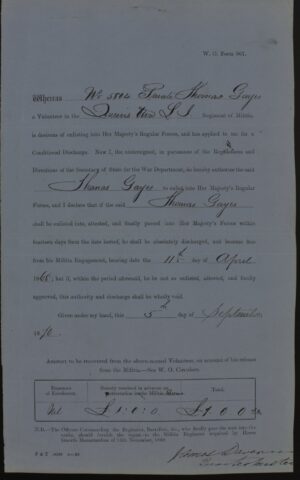 W. O. Form 967.
Whereas No 5804 Private Thomas Gayes
a Volunteer in the Queens Own L I Regiment of Militia,
is desirous of enlisting into Her Majesty's Regular Forces, and has applied to me for a
Conditional Discharge. Now I, the undersigned, in pursuance of the Regulations and
Directions of the Secretary of State for the War Department, do hereby authorise the said
Thomas Gayes to enlist into Her Majesty's Regular
Forces, and I declare that if the said Thomas Gayes
shall be enlisted into, attested, and finally passed into Her Majesty's Forces within
fourteen days from the date hereof, he shall be absolutely discharged, and become free
from his Militia Engagement, bearing date the 11th day of April
but if, within the period aforesaid, he be not so enlisted, attested, and finally
approved, this authority and discharge shall be wholly void.
Given under my hand, this 5th day of September
1870
Amount to be recovered from the above-named Volunteer, on account of his release
from the Militia.—See W. O. Circulars.
Expenses of Enrolment.
Total.
Nil
£1..0..0
N.B.—The Officer Commanding the Regiment,